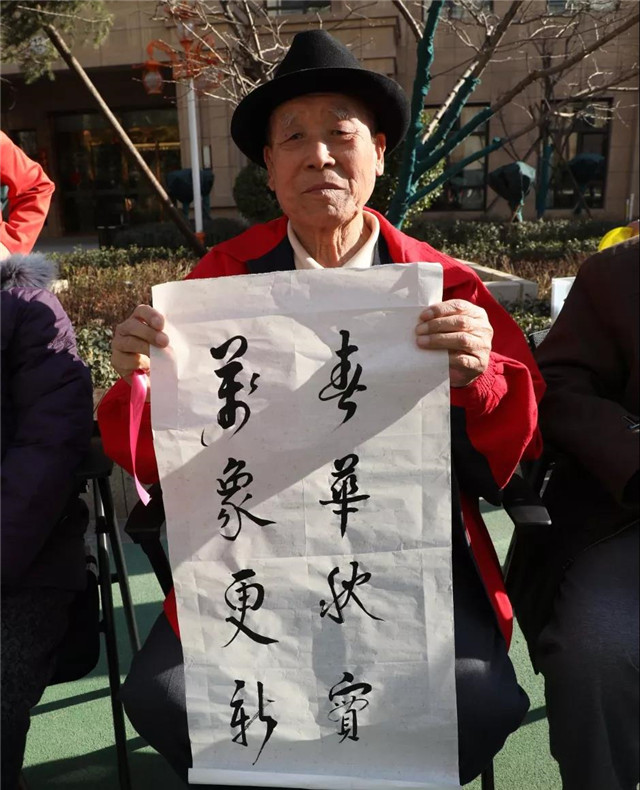 春華秋實
萬象更新